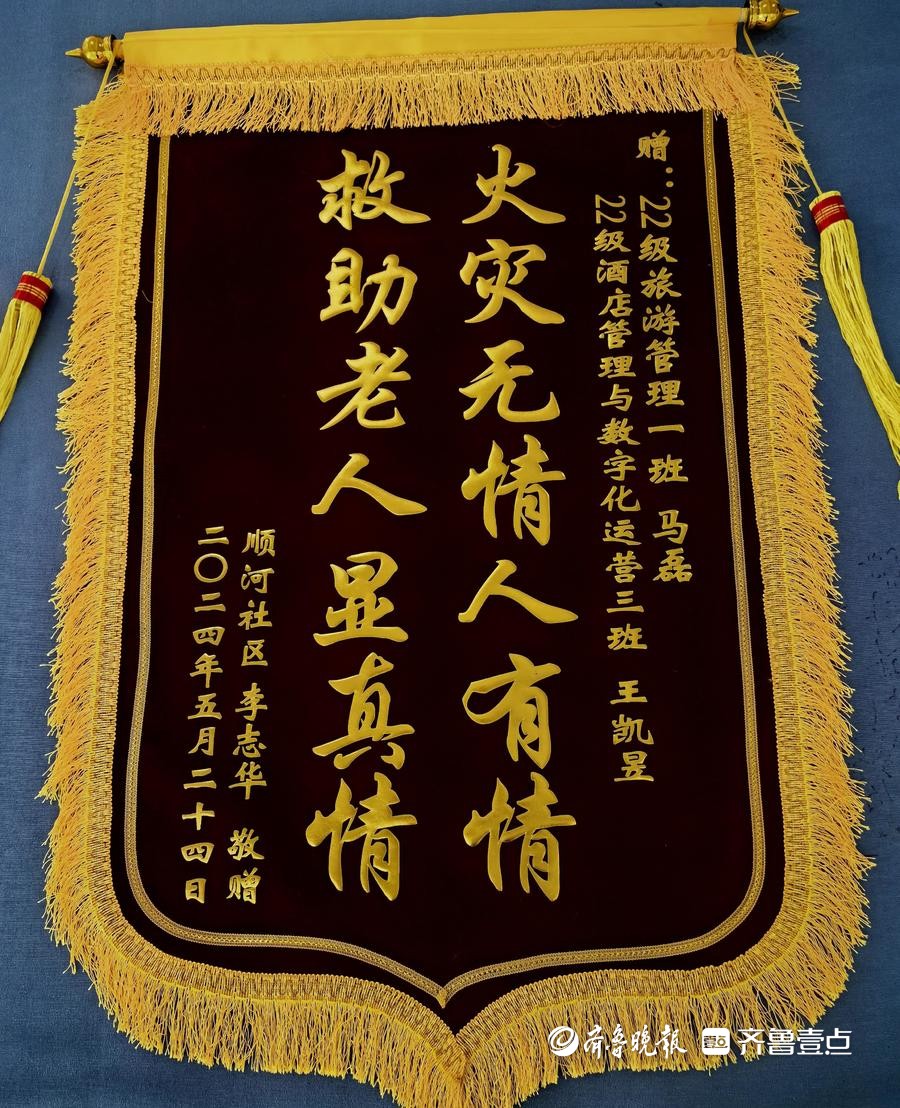 赠：22级旅游管理一班 马磊
22级酒店管理与数字化运营三班 王凯昱
火灾无情人有情
救助老人显真情
顺河社区 李志华 敬赠
二〇二四年五月二十四日
齐鲁晚报 壹点 齐鲁壹点